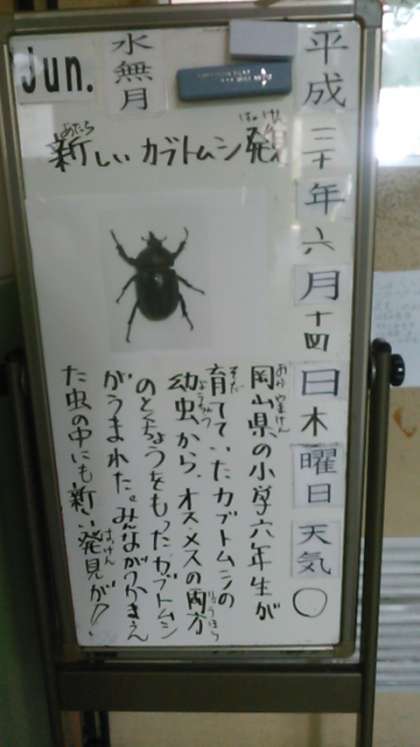 Jun.
水無月
平成三十年六月十四日木曜日天気○
新しいカブトムシ発見
岡山県の小学六年生が
育てていたカブトムシの
幼虫から、オスメスの両方
のとくちょうをもったカブトムシ
がうまれた。みんながつかまえ
た虫の中にも新しい発見が!